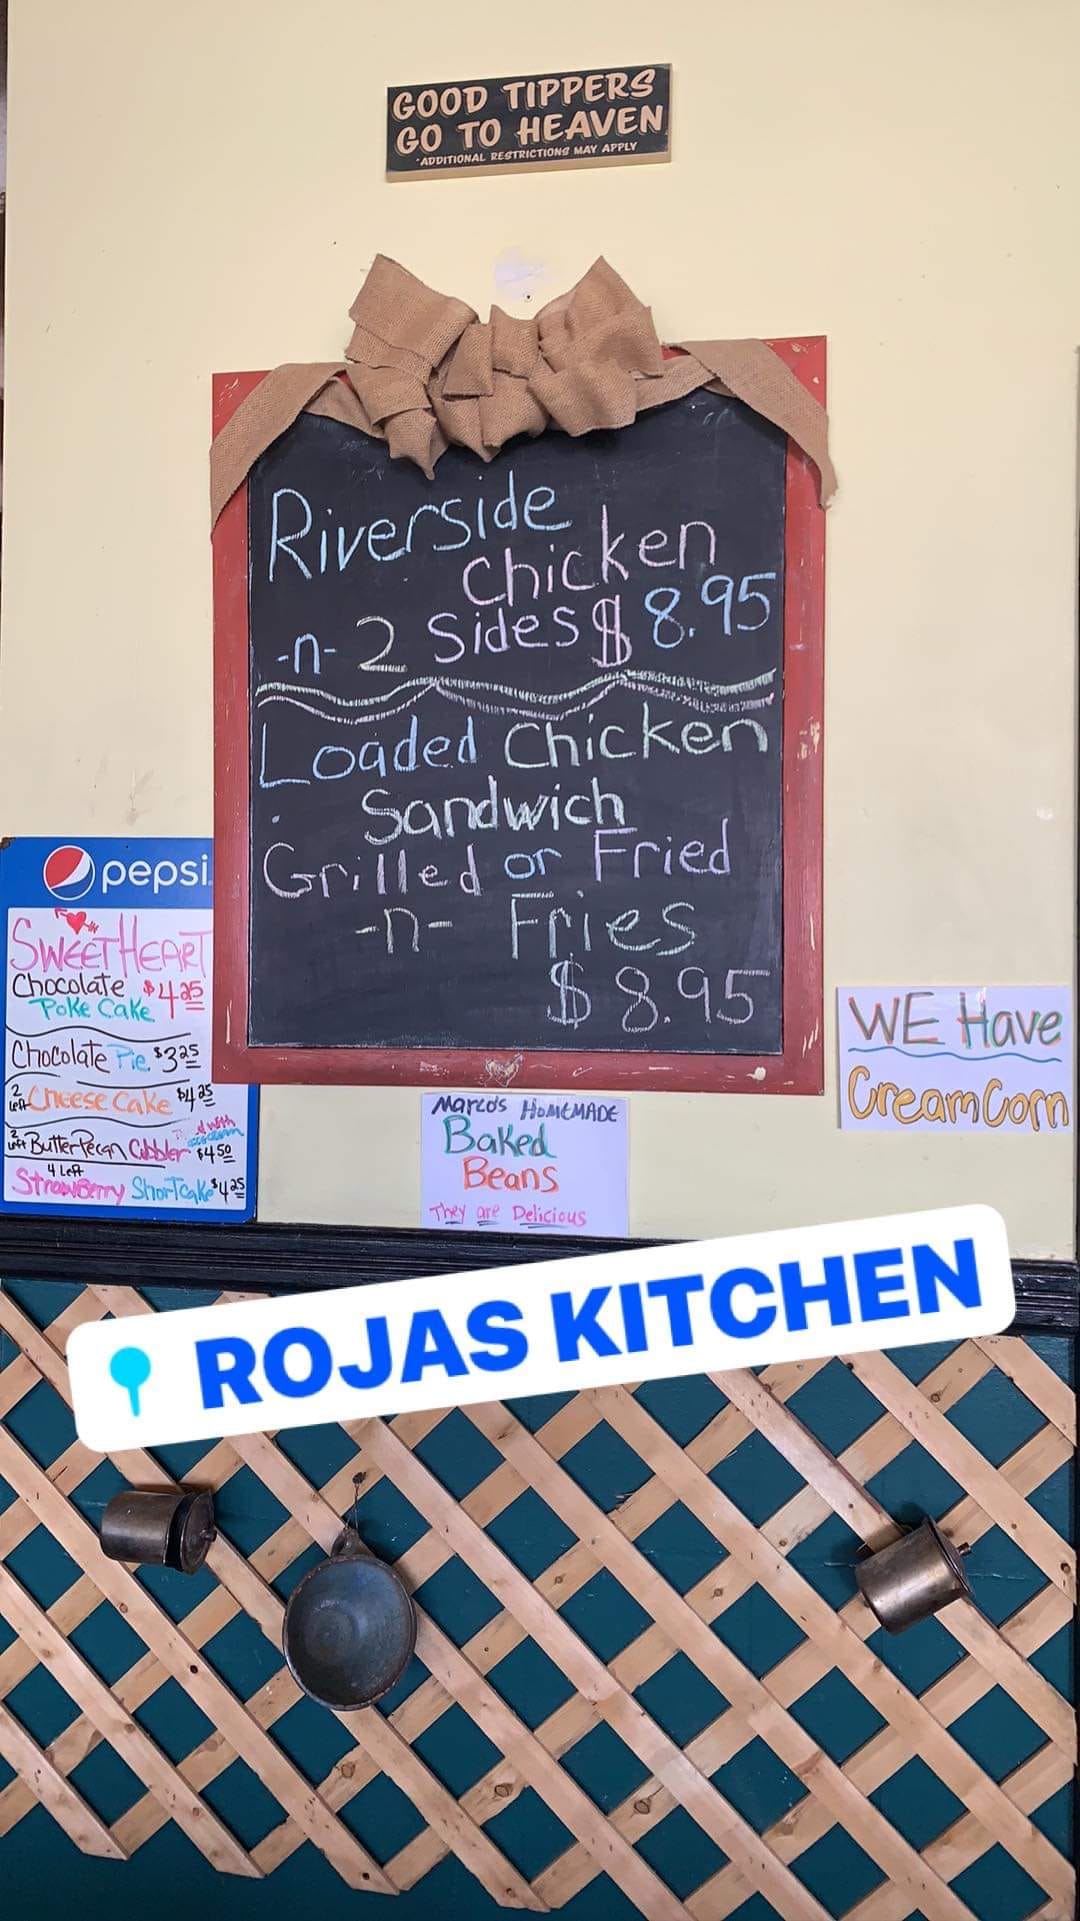 GOOD TIPPERS
GO TO HEAVEN
*ADDITIONAL RESTRICTIONS MAY APPLY
Riverside
Chicken
-n- 2 Sides $ 8.95
Loaded Chicken
Sandwich
Grilled or Fried
-n- Fries
$ 8.95
pepsi
SWEETHEART
Chocolate $4.25
Poke Cake
Chocolate Pie $3.25
2 left Cheese Cake $4.25
2 left Butter Pecan Cobbler with $4.50
4 Left
Strawberry Shortcake $4.25
Marco's HOMEMADE
Baked
Beans
They are Delicious
WE Have
Cream Corn
ROJAS KITCHEN